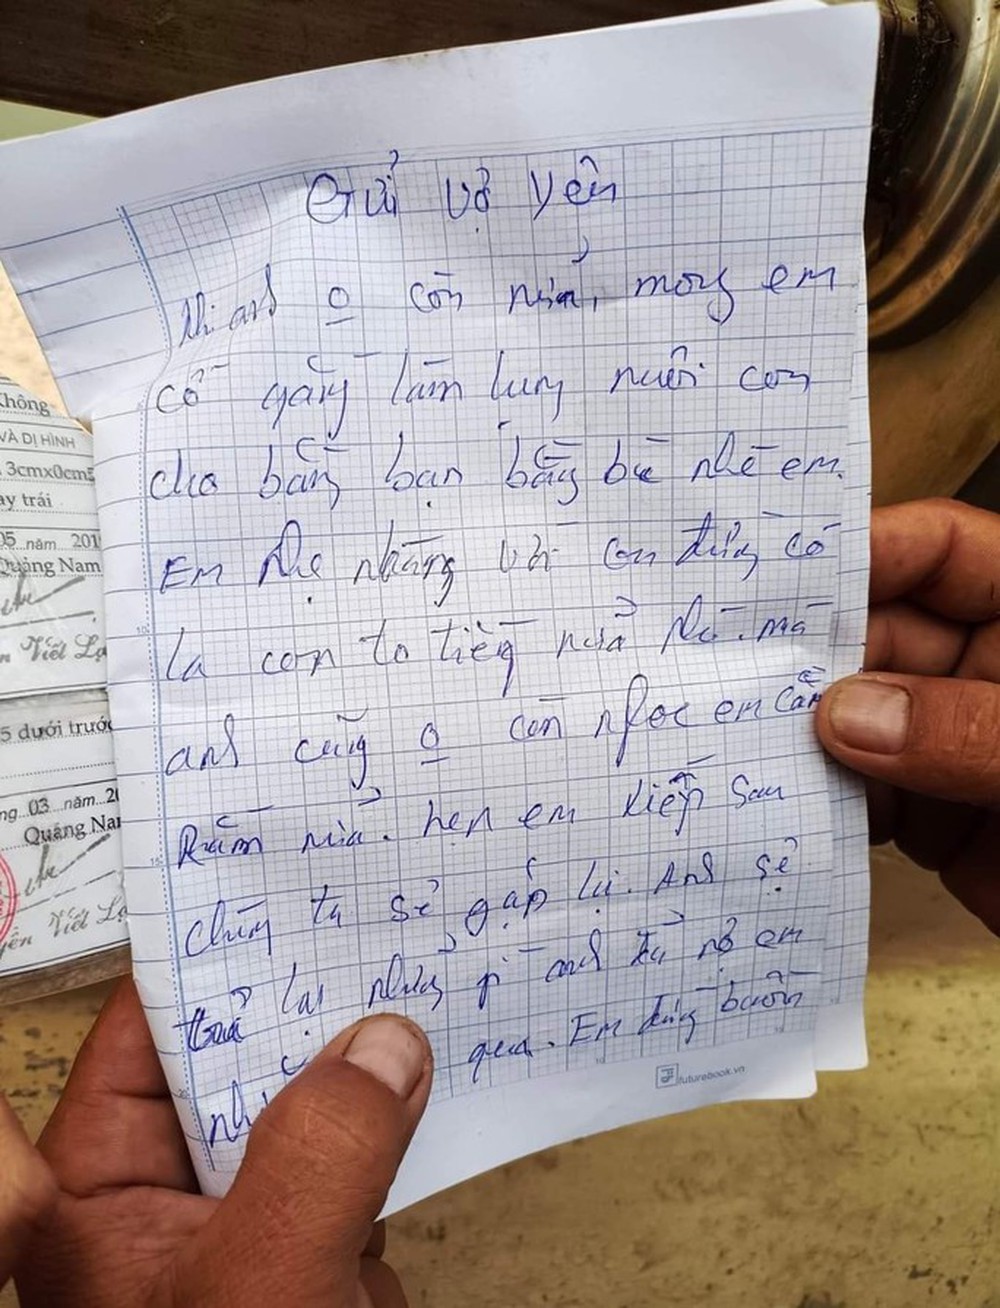 Gửi vợ Yên
Khi anh o còn nữa, mong em
cố gắng làm lụng nuôi con
cho bằng bạn bằng bè nhé em.
Em nhẹ nhàng với con đừng có
la con to tiếng nữa nhé. mà
anh cũng o còn nhọc em cằn
nhằn nữa. hẹn em kiếp sau
chúng ta sẻ gặp lại. Anh sẻ
trả lại những gì anh đã nợ em
qua. Em đừng buồn
futurebook.vn
Không
VÀ DỊ HÌNH
3cmx0cm5
ay trái
05 năm 201
Quảng Nam
Viết Lợ
5 dưới trước
ng 03 năm 20
Quảng Na
yễn Viết Lợ